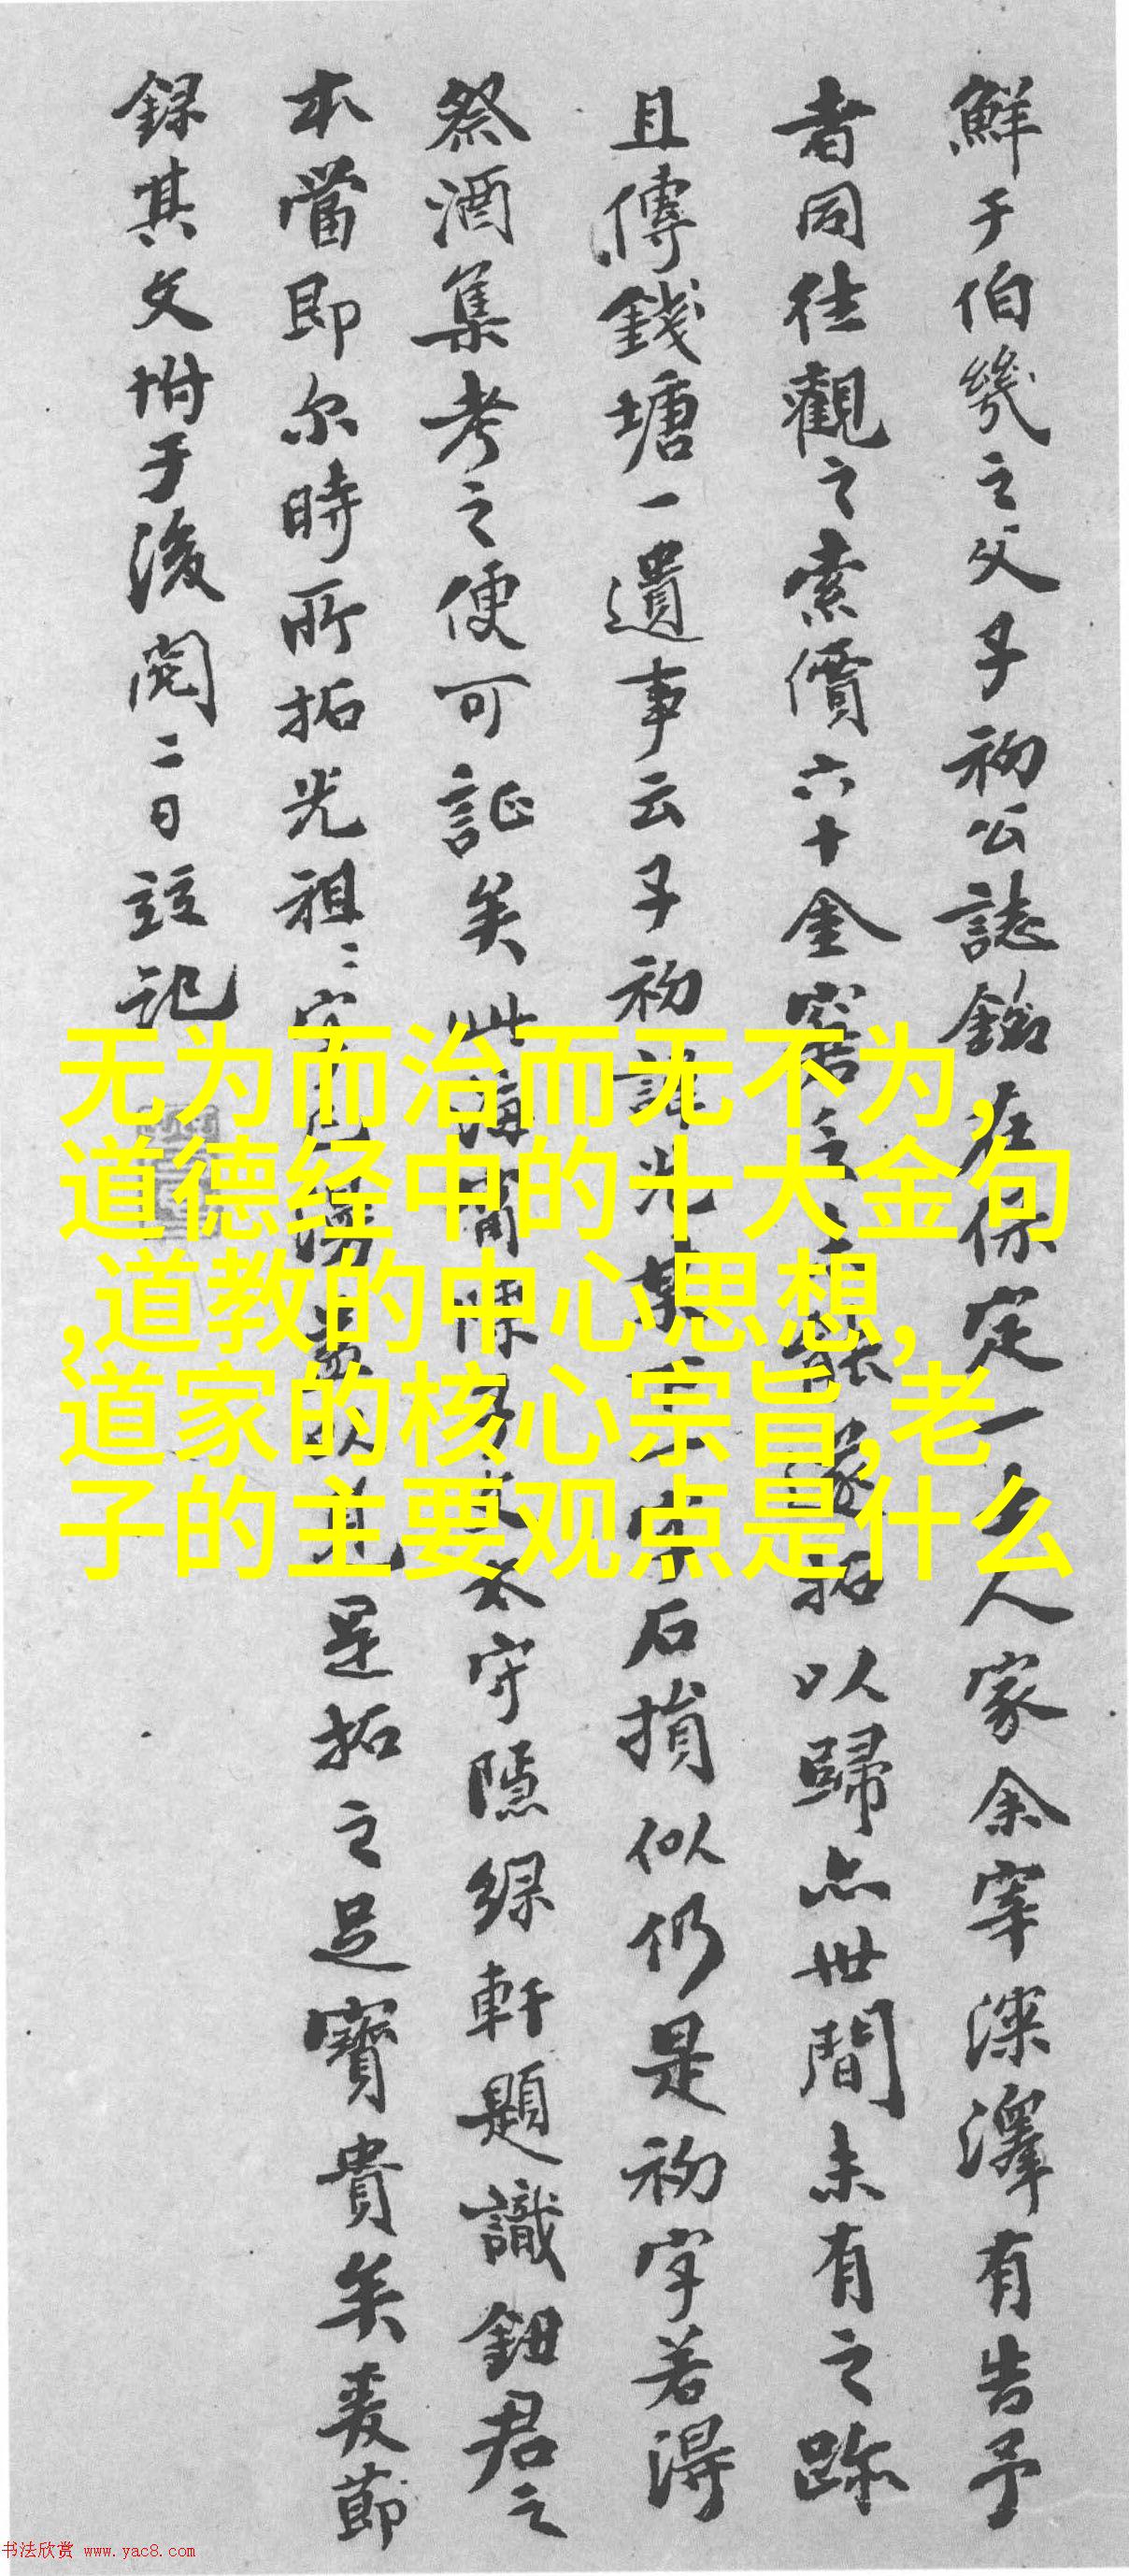 鮮于伯幾之父子初公誌銘在保定一士人家余宰深澤有告予
者同往觀之索價六十金窘之不能
拓以歸亦世間未有之跡
且傳錢塘一遺事云子初諱光
字石損似仍是初字若得
祭酒集考之便可証矣此海甯陳
太守隱綠軒題識鈕君之
本當即尔時所拓光祖〻字
是拓之足寶貴矣爰節
錄其文坿于後閱二日
記
无为而治而无不为,
道德经中的十大金句
,道教的中心思想,
道家的核心宗旨,老
子的主要观点是什么
书法欣赏 www.yac8.com